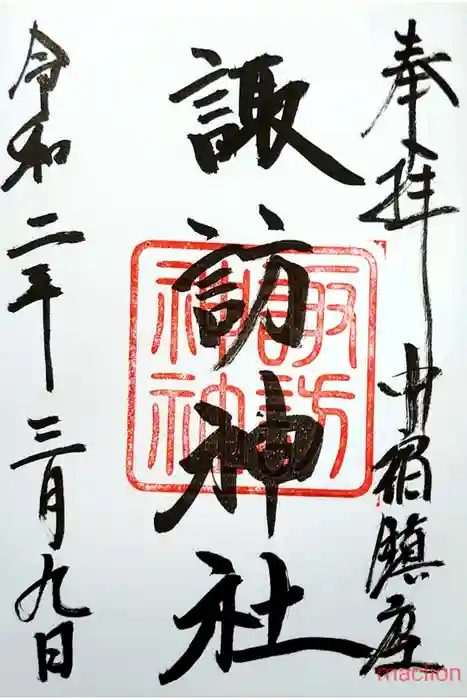 奉拝
宿鎮座
諏訪神社
諏訪
神社
令和二年三月九日
maclion